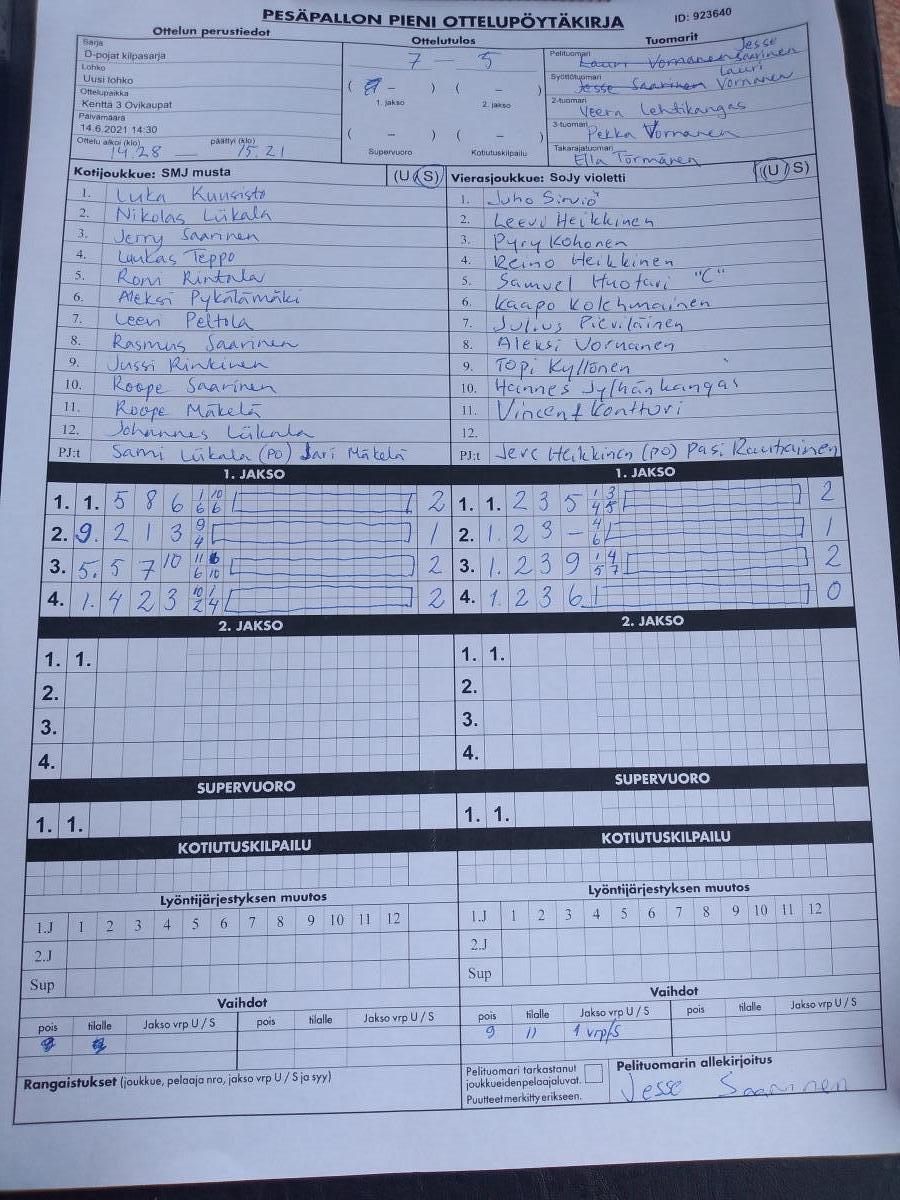 PESÄPALLON PIENI OTTELUPÖYTÄKIRJA
ID: 923640
Ottelun perustiedot
Sarja
D-pojat kilpasarja
Lohko
Uusi lohko
Ottelupaikka
Kenttä 3 Ovikaupat
Päivämäärä
14.6.2021 14:30
Ottelu alkoi (klo) päättyi (klo)
14.28 — 15.21
Ottelutulos
7 — 5
( – ) ( – )
1. jakso 2. jakso
( – ) ( – )
Supervuoro Kotiutuskilpailu
Tuomarit
Pelituomari
Lauri Vornanen Jesse Saarinen
Syöttötuomari
Jesse Saarinen Lauri Vornanen
2-tuomari
Veera Lehtikangas
3-tuomari
Pekka Vornanen
Takarajatuomari
Ella Törmänen
Kotijoukkue: SMJ musta (U / S)
1. Luka Kuusisto
2. Nikolas Liikala
3. Jerry Saarinen
4. Luukas Teppo
5. Roni Rintala
6. Aleksi Pykälämäki
7. Leevi Peltola
8. Rasmus Saarinen
9. Jussi Rinkinen
10. Roope Saarinen
11. Roope Mäkelä
12. Johannes Liikala
PJ:t Sami Liikala (PO) Jari Mäkelä
Vierasjoukkue: SoJy violetti (U / S)
1. Juho Sirviö
2. Leevi Heikkinen
3. Pyry Kohonen
4. Reino Heikkinen
5. Samuel Huotari "C"
6. Kaapo Kolehmainen
7. Julius Pieviläinen
8. Aleksi Vornanen
9. Topi Kyllönen
10. Hannes Jylhänkangas
11. Vincent Konttori
12.
PJ:t Jere Heikkinen (PO) Pasi Rautiainen
1. JAKSO
1. 1. 5 8 6 1/6 10/6 2
2. 9. 2 1 3 9/4 1
3. 5. 5 7 10 2
4. 1. 4 2 3 10/2 1/4 2
1. JAKSO
1. 1. 2 3 5 1/4 3/5 2
2. 1. 2 3 – 4/6 1
3. 1. 2 3 9 1/5 4/7 2
4. 1. 2 3 6 0
2. JAKSO
1. 1.
2.
3.
4.
2. JAKSO
1. 1.
2.
3.
4.
SUPERVUORO
1. 1.
SUPERVUORO
1. 1.
KOTIUTUSKILPAILU
KOTIUTUSKILPAILU
Lyöntijärjestyksen muutos
1.J 1 2 3 4 5 6 7 8 9 10 11 12
2.J
Sup
Lyöntijärjestyksen muutos
1.J 1 2 3 4 5 6 7 8 9 10 11 12
2.J
Sup
Vaihdot
pois tilalle Jakso vrp U / S pois tilalle Jakso vrp U / S
Vaihdot
pois tilalle Jakso vrp U / S pois tilalle Jakso vrp U / S
9 11 1 vrp/S
Rangaistukset (joukkue, pelaaja nro, jakso vrp U / S ja syy)
Pelituomari tarkastanut
joukkueidenpelaajaluvat.
Puutteet merkitty erikseen.
Pelituomarin allekirjoitus
Jesse Saarinen